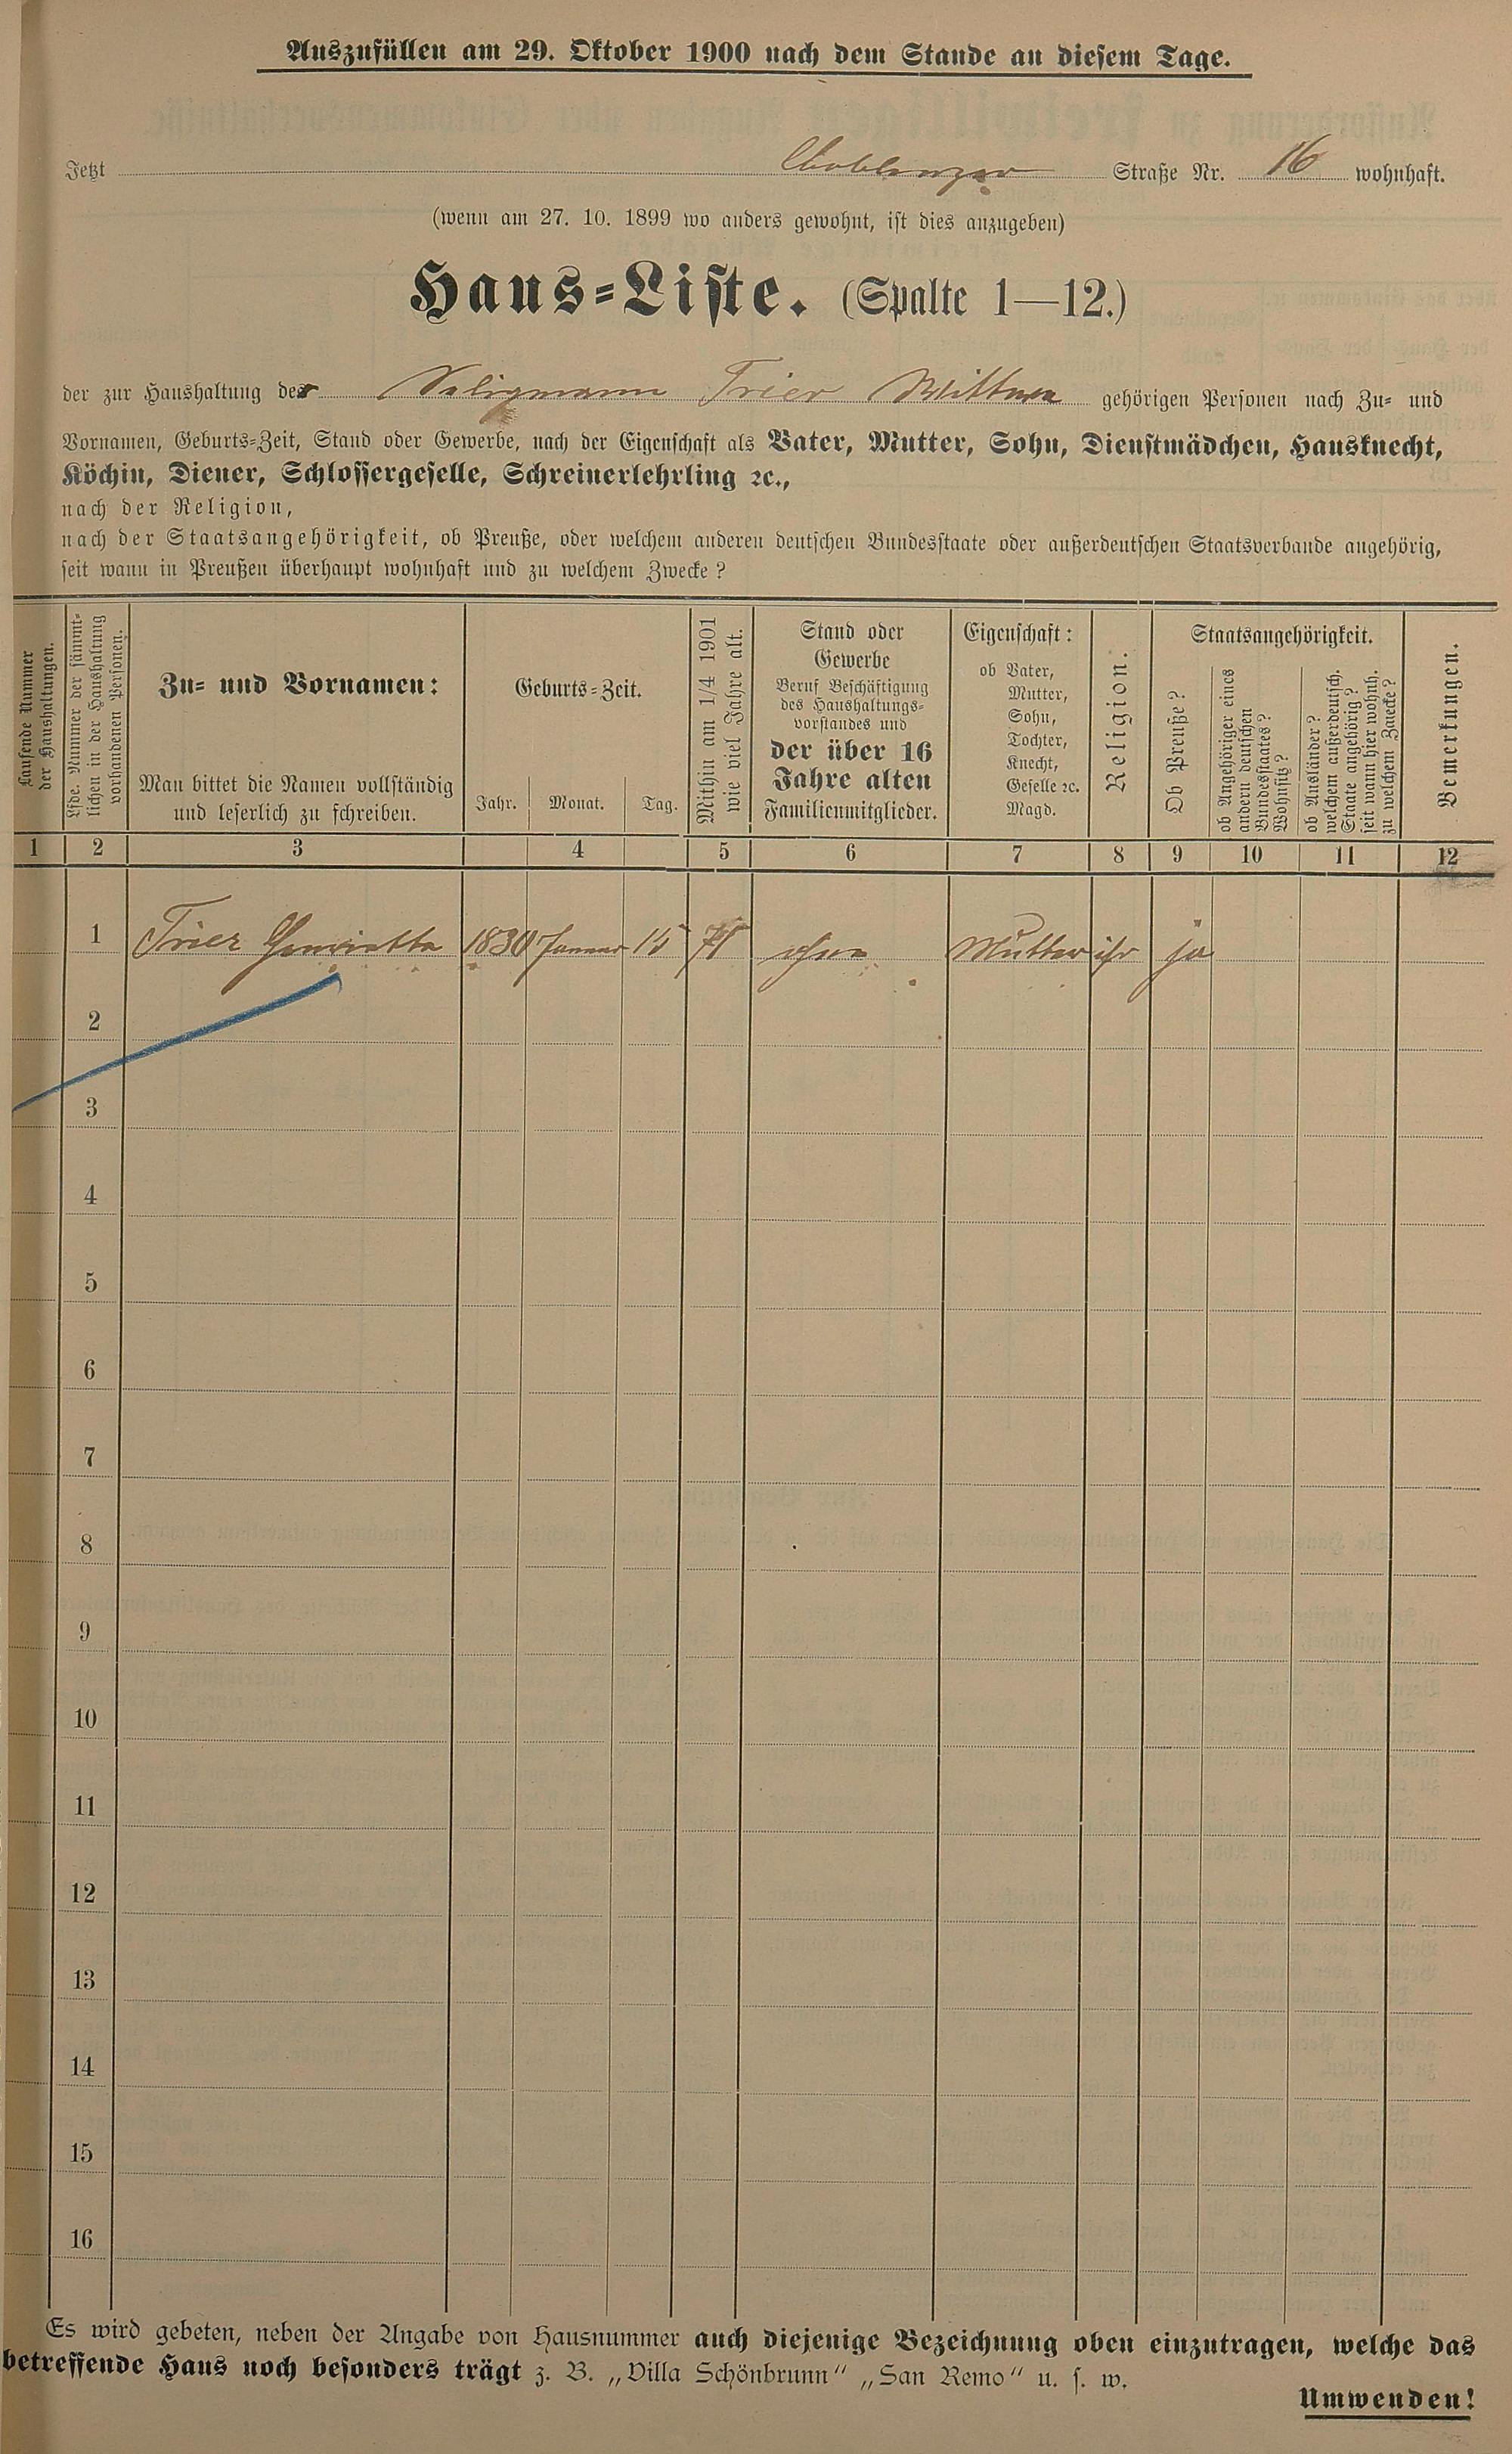 Auszufüllen am 29. Oktober 1900 nach dem Stande an diesem Tage.
Jetzt Coblenzer Straße Nr. 16 wohnhaft.
(wenn am 27. 10. 1899 wo anders gewohnt, ist dies anzugeben)
Haus-Liste. (Spalte 1—12.)
der zur Haushaltung der Seligmann Trier Wittwe gehörigen Personen nach Zu- und
Vornamen, Geburts-Zeit, Stand oder Gewerbe, nach der Eigenschaft als Vater, Mutter, Sohn, Dienstmädchen, Hausknecht,
Köchin, Diener, Schlossergeselle, Schreinerlehrling ꝛc.,
nach der Religion,
nach der Staatsangehörigkeit, ob Preuße, oder welchem anderen deutschen Bundesstaate oder außerdeutschen Staatsverbande angehörig,
seit wann in Preußen überhaupt wohnhaft und zu welchem Zwecke?
Laufende Nummer
der Haushaltungen.
Lfde. Nummer der sämmt-
lichen in der Haushaltung
vorhandenen Personen.
Zu- und Vornamen:
Man bittet die Namen vollständig
und leserlich zu schreiben.
Geburts-Zeit.
Jahr. Monat. Tag.
Mithin am 1/4 1901
wie viel Jahre alt.
Stand oder
Gewerbe
Beruf Beschäftigung
des Haushaltungs-
vorstandes und
der über 16
Jahre alten
Familienmitglieder.
Eigenschaft:
ob Vater,
Mutter,
Sohn,
Tochter,
Knecht,
Geselle ꝛc.
Magd.
Religion.
Staatsangehörigkeit.
Ob Preuße?
ob Angehöriger eines
andern deutschen
Bundesstaates?
Wohnsitz?
ob Ausländer?
welchem außerdeutsch.
Staate angehörig?
seit wann hier wohnh.
zu welchem Zwecke?
Bemerkungen.
1 2 3 4 5 6 7 8 9 10 11 12
1 Trier Henrietta 1830 Januar 15 71 ohne Mutter isr ja
2
3
4
5
6
7
8
9
10
11
12
13
14
15
16
Es wird gebeten, neben der Angabe von Hausnummer auch diejenige Bezeichnung oben einzutragen, welche das
betreffende Haus noch besonders trägt z. B. „Villa Schönbrunn“ „San Remo“ u. s. w.
Umwenden!